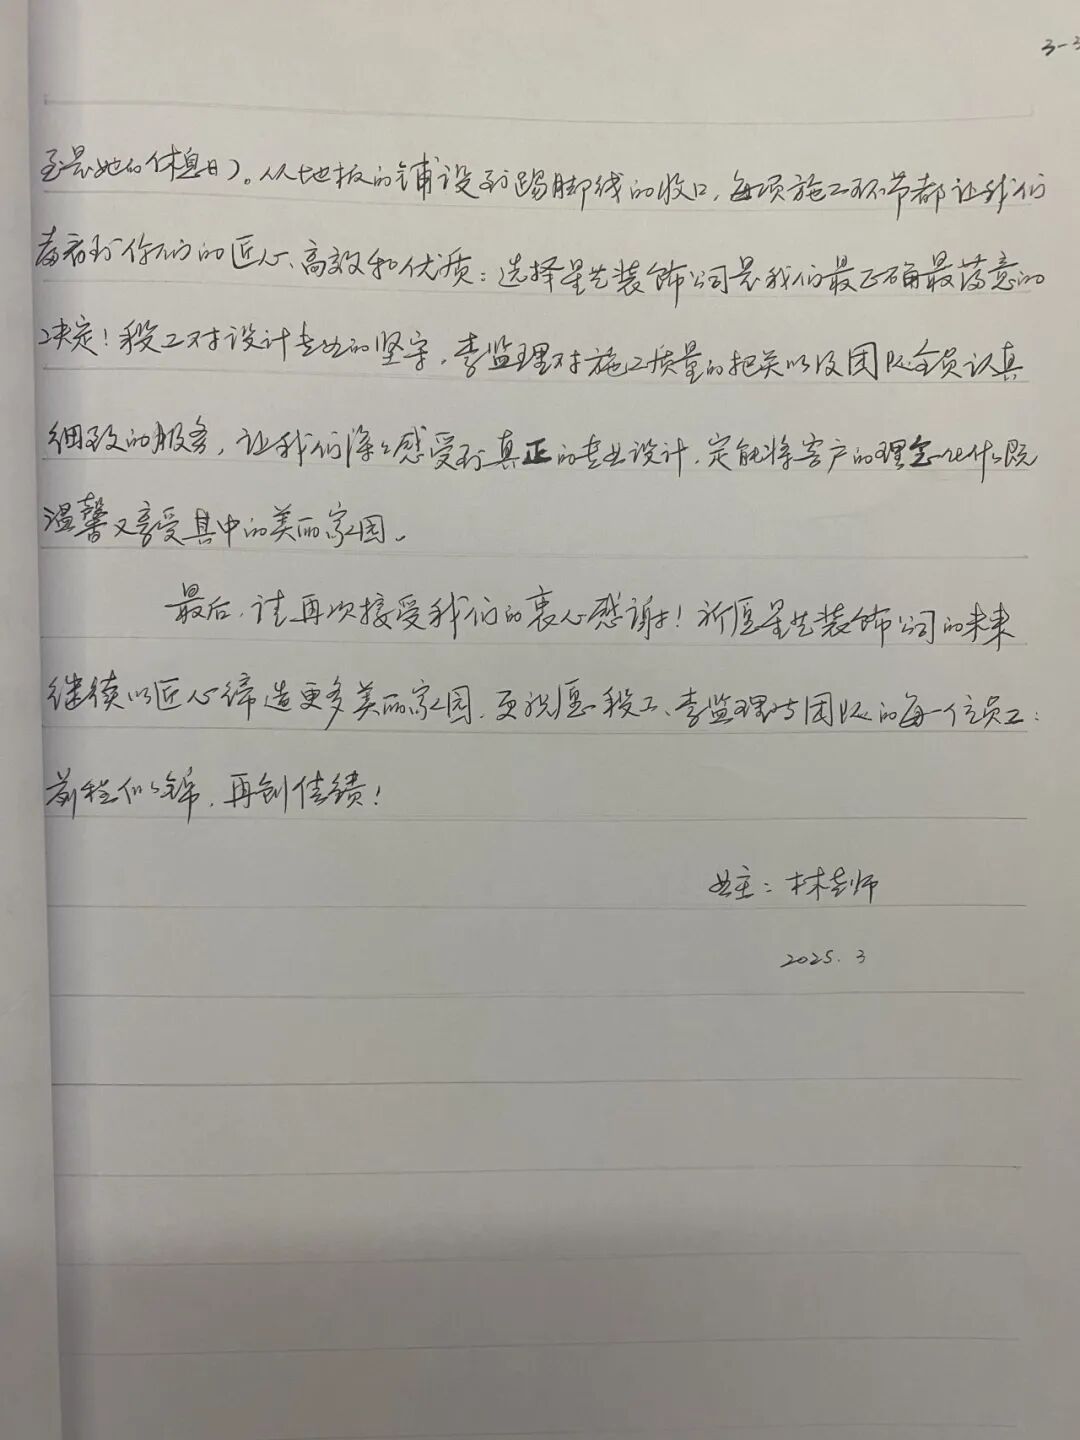 3-3
至是她的休息日)。从地板的铺设到踢脚线的收口,每项施工环节都让我们
看到你们的匠心、高效和优质:选择星艺装饰公司是我们最正确最满意的
决定!段工对设计专业的坚守,李监理对施工质量的把关以及团队全员认真
细致的服务,让我们深深感受到真正的专业设计,定能将客户的理念化作既
温馨又享受其中的美丽家园。
最后,请再次接受我们的衷心感谢!祈愿星艺装饰公司的未来
继续以匠心缔造更多美丽家园,更祝愿段工、李监理与团队的每一位员工:
前程似锦,再创佳绩!
业主:林老师
2025.3